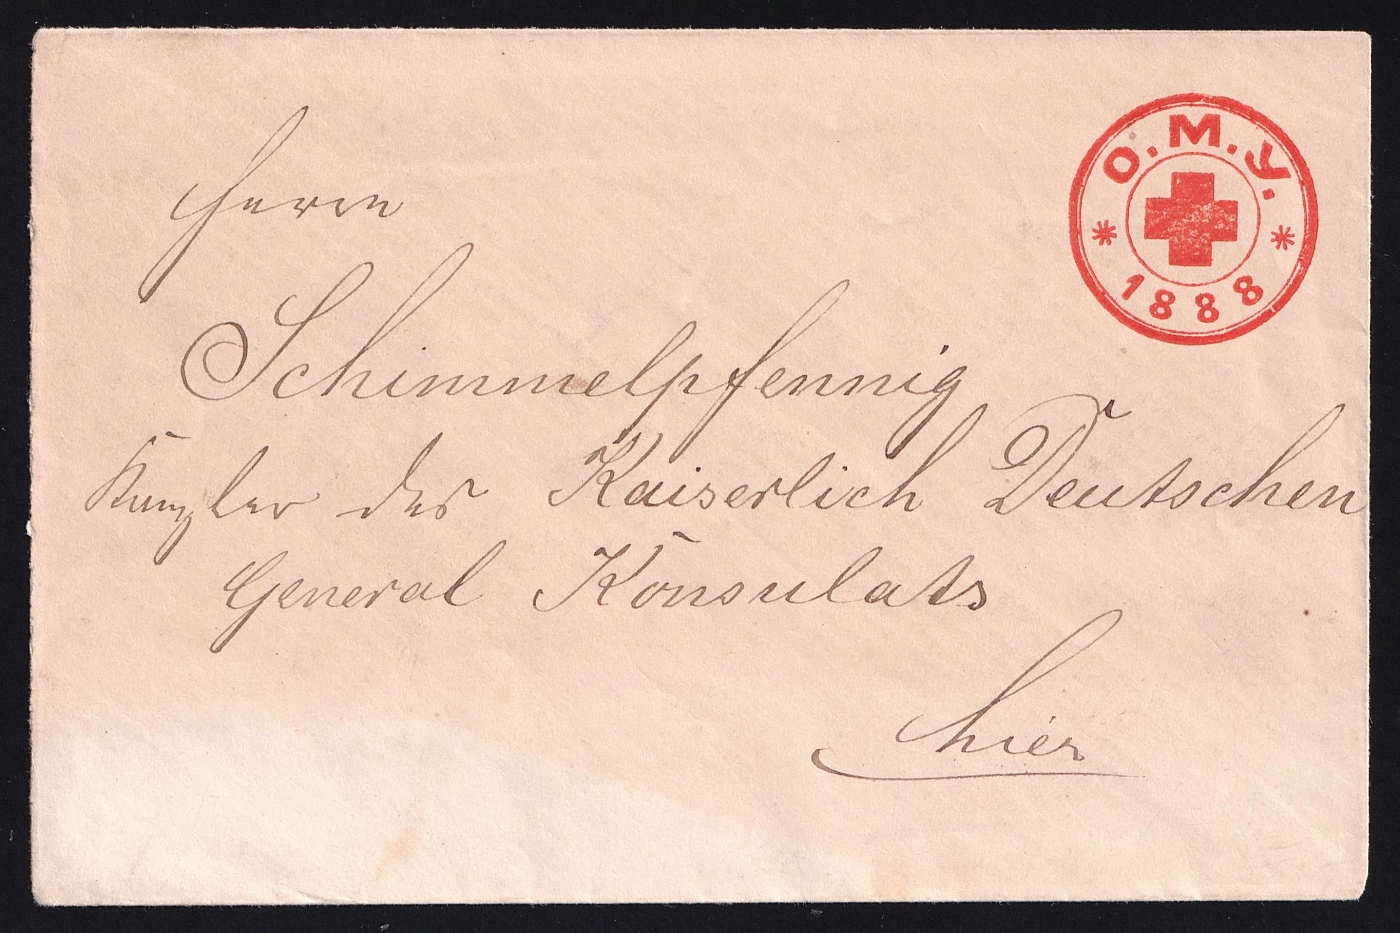 O.M.У.
* 1888 *
Herrn
Schimmelpfennig
Kanzler des Kaiserlich Deutschen
General Konsulats
hier